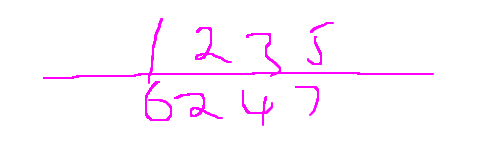 1235
6247